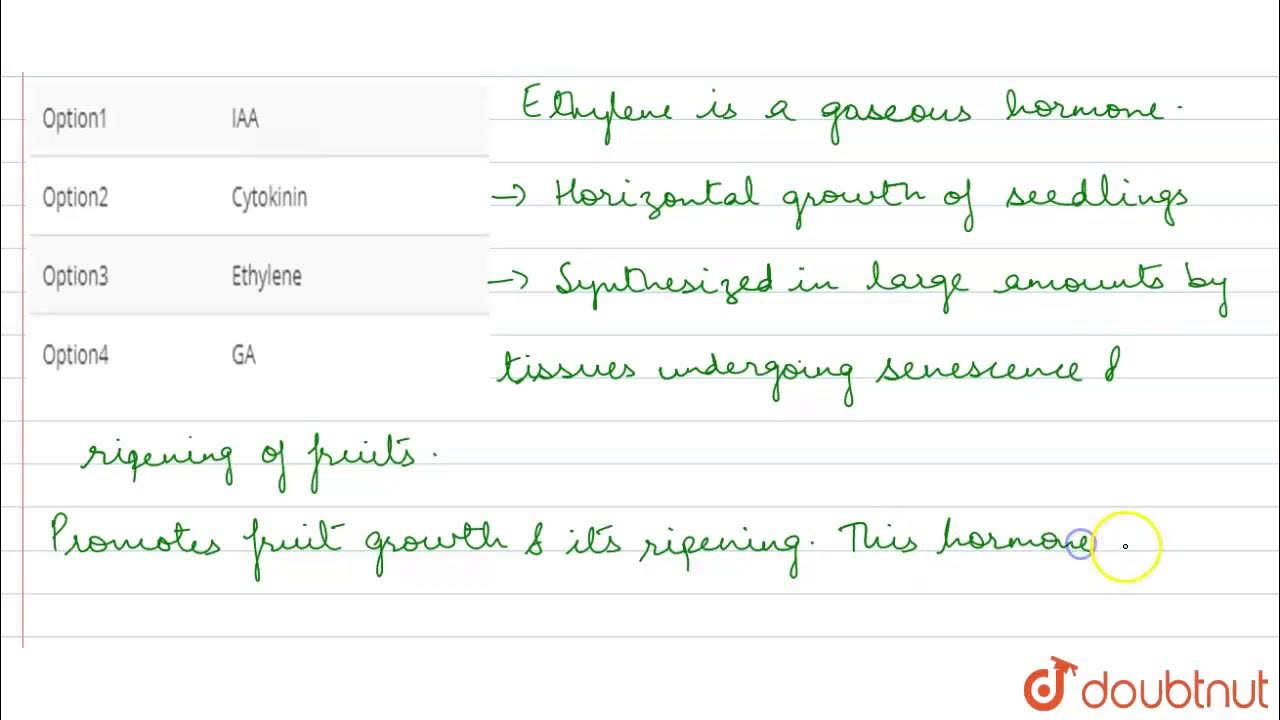 Option1 IAA
Ethylene is a gaseous hormone.
Option2 Cytokinin
→ Horizontal growth of seedlings
Option3 Ethylene
→ Synthesized in large amounts by
Option4 GA
tissues undergoing senescence &
ripening of fruits.
Promotes fruit growth & its ripening. This hormone
doubtnut